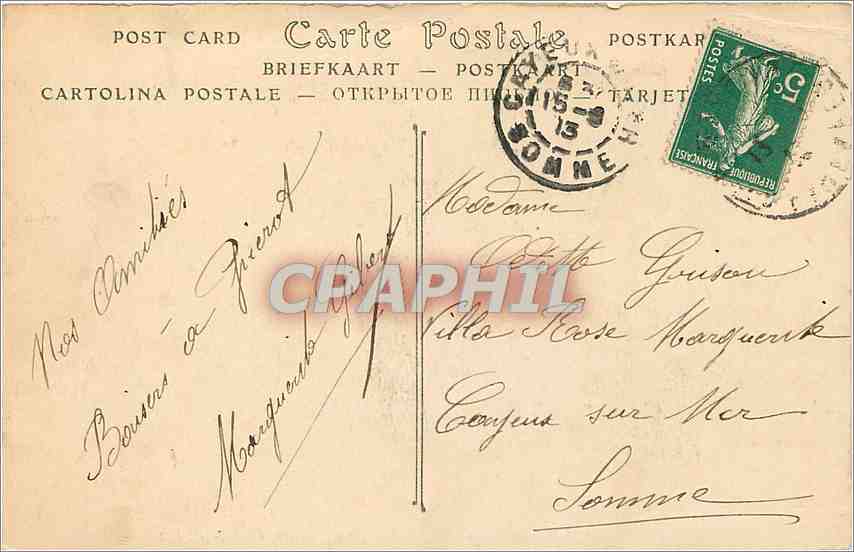 POST CARD Carte Postale POSTKAR
BRIEFKAART — POSTKAART
CARTOLINA POSTALE — ОТКРЫТОЕ ПИ — TARJET
CAYEUX
15-8
13
SOMME
POSTES
5c
REPUBLIQUE FRANÇAISE
Nos Amitiés
Baisers à Pierrot
Marguerite Gilbert
CPAPHIL
Madame
Odette Grison
Villa Rose Marguerite
Cayeux sur Mer
Somme